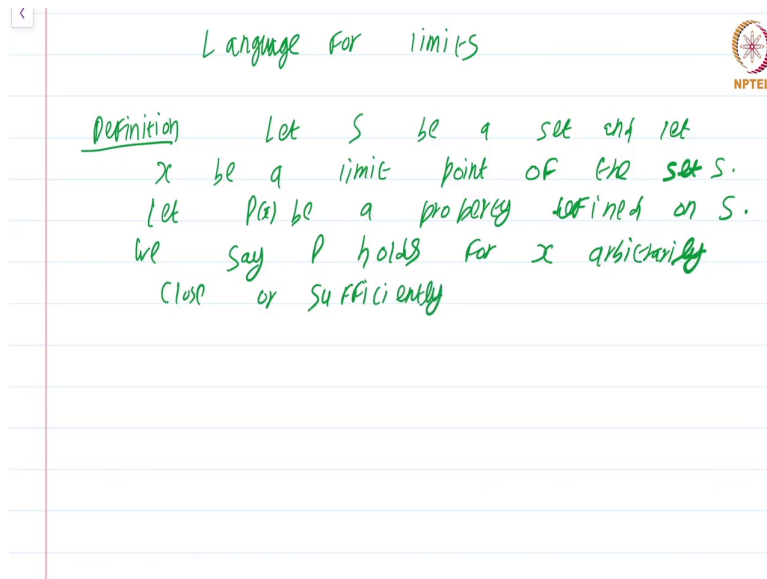 Language For limits
NPTEL
Definition Let S be a set and let
x be a limit point of the set S.
Let P(x) be a property defined on S.
We say P holds for x arbitrarily
close or sufficiently